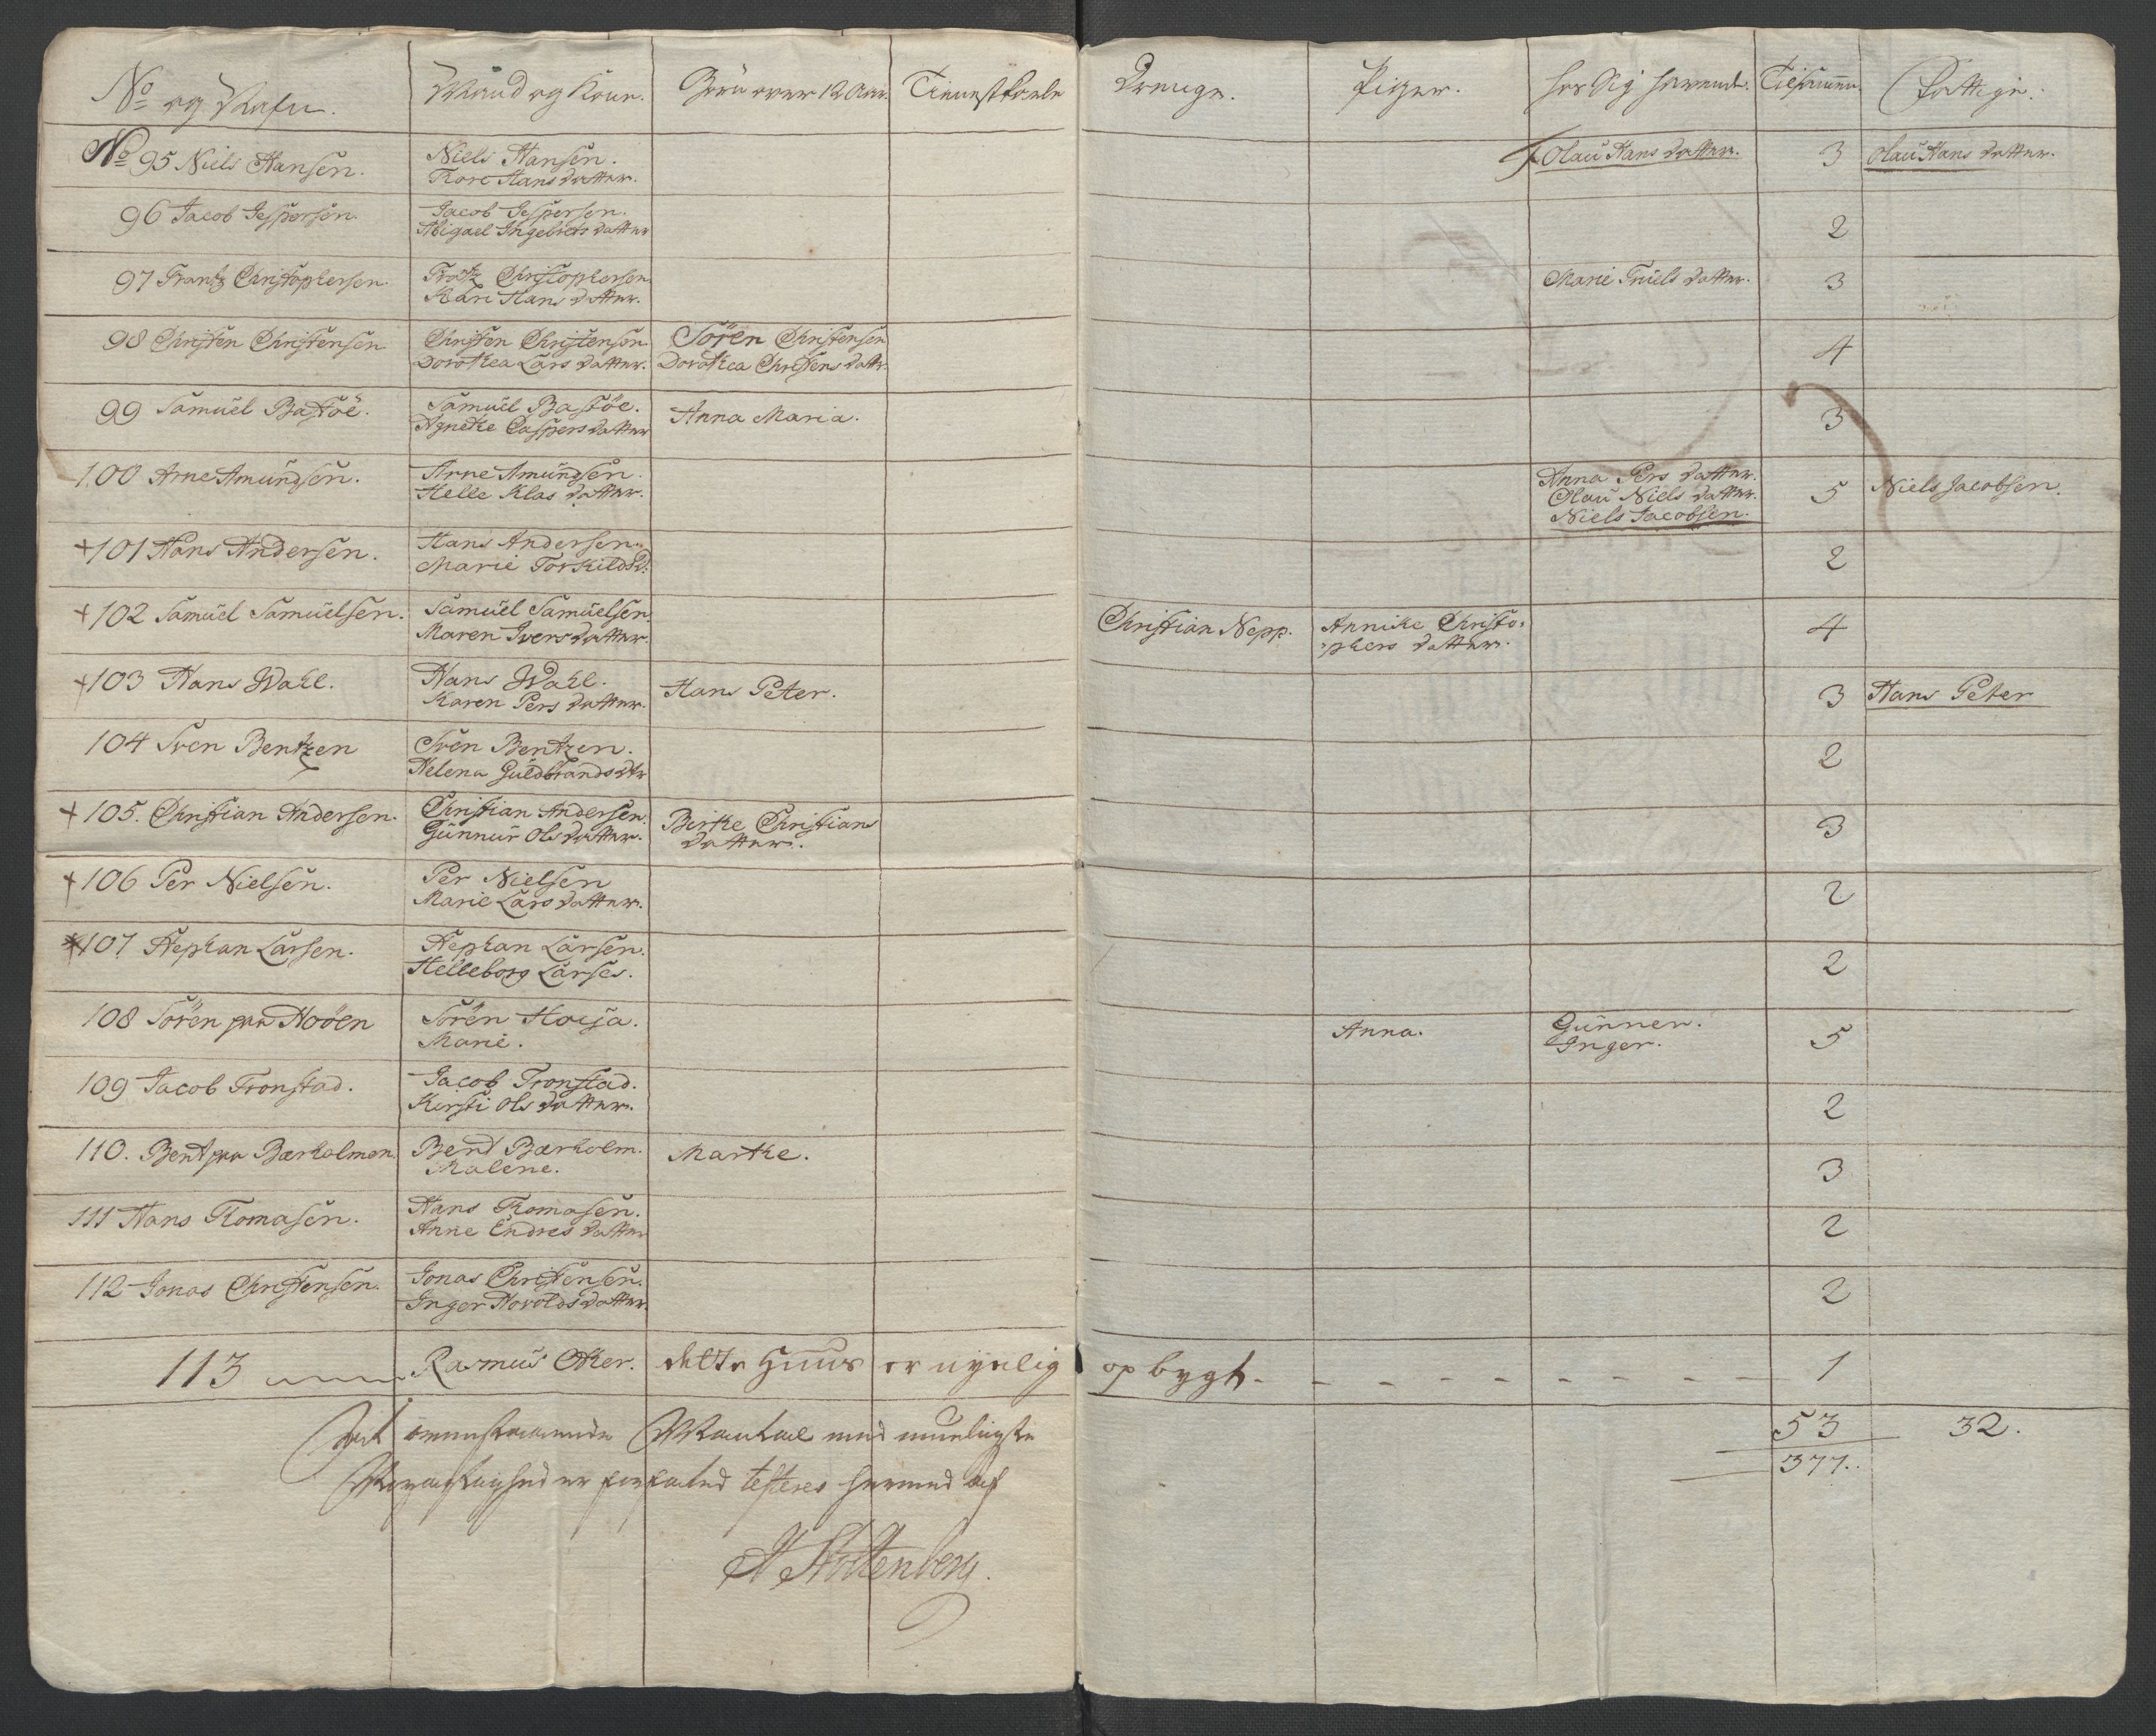 No og Nafn. Mand og Kone. Börn over 12 Aar. Tienestfolk Drenge. Piger. hos Sig havende. Tilsammen Fattige.
No 95 Niels Hansen. Niels Hansen. Olau Hans datter. 3 Olau Hans datter.
Kore Hans datter.
96 Jacob Jespersen. Jacob Jespersen. 2
Abigael Ingebrets datter
97 Frantz Christophersen. Fratz Christophersen Marie Truels datter. 3
Kari Hans datter.
98 Christen Christensen Christen Christensen Sören Christensen 4
Dorothea Lars datter. Dorothea Christens datr.
99 Samuel Bastöe. Samuel Bastöe. Anna Maria. 3
Agnethe Caspers datter
100 Arne Amundsen. Arne Amundsen. Anna Pers datter. 5 Niels Jacobsen.
Helle Klas datter. Olau Niels datter.
Niels Jacobsen.
+101 Hans Andersen. Hans Andersen. 2
Marie Torkilds D:
+102 Samuel Samuelsen. Samuel Samuelsen. Christian Nepp. Annike Christo- 4
Maren Ivers datter. phers datter.
+103 Hans Wahl. Hans Wahl. Hans Peter. 3 Hans Peter
Karen Pers datter.
104 Sven Bentzen Sven Bentzen. 2
Helena Guldbrands dtr
+105. Christian Andersen. Christian Andersen. Birthe Christians 3
Gunnur Ols datter. datter.
+106 Per Nielsen. Per Nielsen 2
Marie Lars datter.
+107 Stephan Larsen. Stephan Larsen. 2
Helleborg Larses.
108 Sören paa Höÿen Sören Haeja. Anna. Gunner. 5
Marie. Inger.
109 Jacob Tronstad. Jacob Tronstad. 2
Kersti Ols datter.
110. Bent paa Barholmen. Bent Barholm. Marthe. 3
Malene.
111 Hans Thomasen. Hans Thomasen. 2
Anne Endres datter
112 Jonas Christensen. Jonas Christensen. 2
Inger Harolds datter.
113 Rasmus Other. dette Huus er nyelig opbygt. - - - - - - - - 1
At ovenstaaende Mantal med mueligste 53 32.
Nöyagtighed er forfatted testeres hermed af 377.
A Stoltenberg.